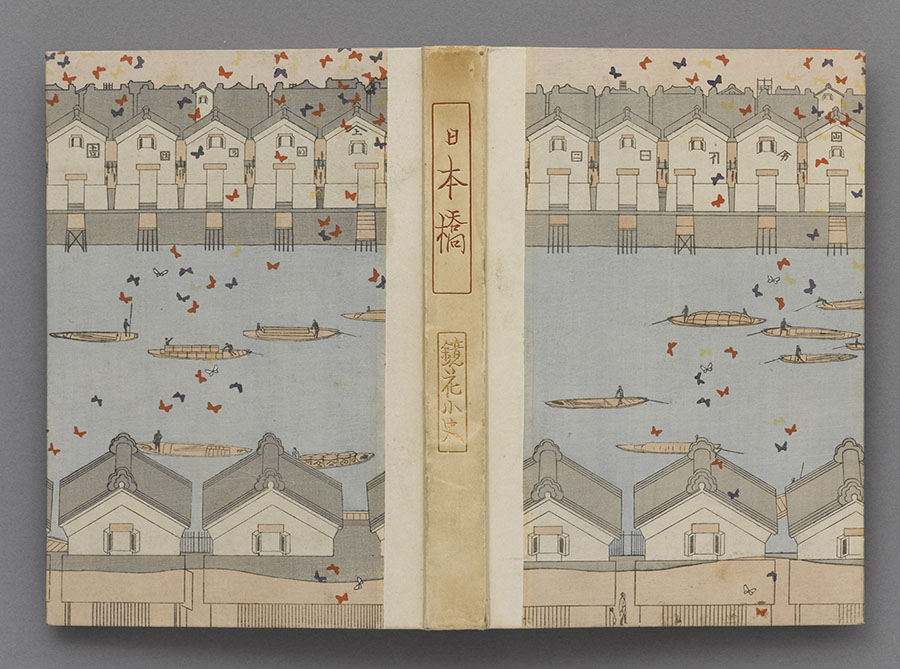 日本橋
鏡花小史